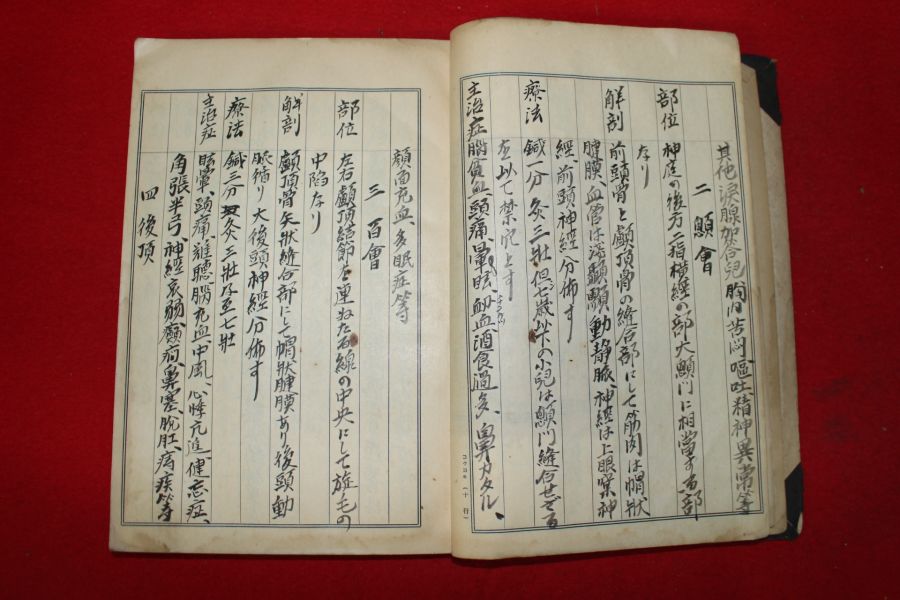 其他淚腺加答兒胸内苦悶嘔吐精神異常等
二 顖會
部位 神庭の後方二指橫經の部大顖門に相當する部
なり
解剖 前頭骨と顱頂骨の縫合部にして筋肉は帽狀
腱膜、血管は淺顳顬動靜脈神經は上眼窠神
經、前頭神經分佈す
療法 鍼一分 灸三壯 但し七歲以下の小兒は顖門縫合せざる
を以て禁穴とす
主治症 腦貧血頭痛暈眩、衂血、酒食過多、鼻カタル、
顏面充血、多眠症等
三 百會
部位 左右顱頂結節を連ねた右線の中央にして旋毛の
中陷なり
解剖 顱頂骨矢狀縫合部にして帽狀腱膜あり後頭動
脈循り大後頭神經分佈す
療法 鍼三分 灸三壯乃至七壯
主治症 眩暈、頭痛、難聽、腦充血、中風、心悸亢進、健忘症、
角張半弓、神經衰弱、癲癇、鼻塞、脫肛、痎疾等
四 後頂